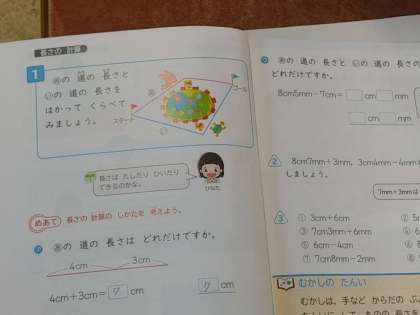 長さの 計算
1
あの 道の 長さと
いの 道の 長さを
はかって くらべて
みましょう。
あ
ゴール
スタート
い
長さは たしたり ひいたり
できるのかな。
ひなた
めあて 長さの 計算の しかたを 考えよう。
ア あの 道の 長さは どれだけですか。
4cm 3cm
4cm+3cm=7cm 7cm
あの 道の 長さと いの 道の 長さの
どれだけですか。
8cm5mm-7cm= cm mm
cm mm
2 8cm7mm+3mm、3cm4mm-4mm
しましょう。
7mm+3mmは
3 ① 3cm+6cm ②
③ 7cm3mm+6mm ④
⑤ 6cm-4cm ⑥
⑦ 7cm8mm-2mm ⑧
むかしの たんい
むかしは、手など からだの